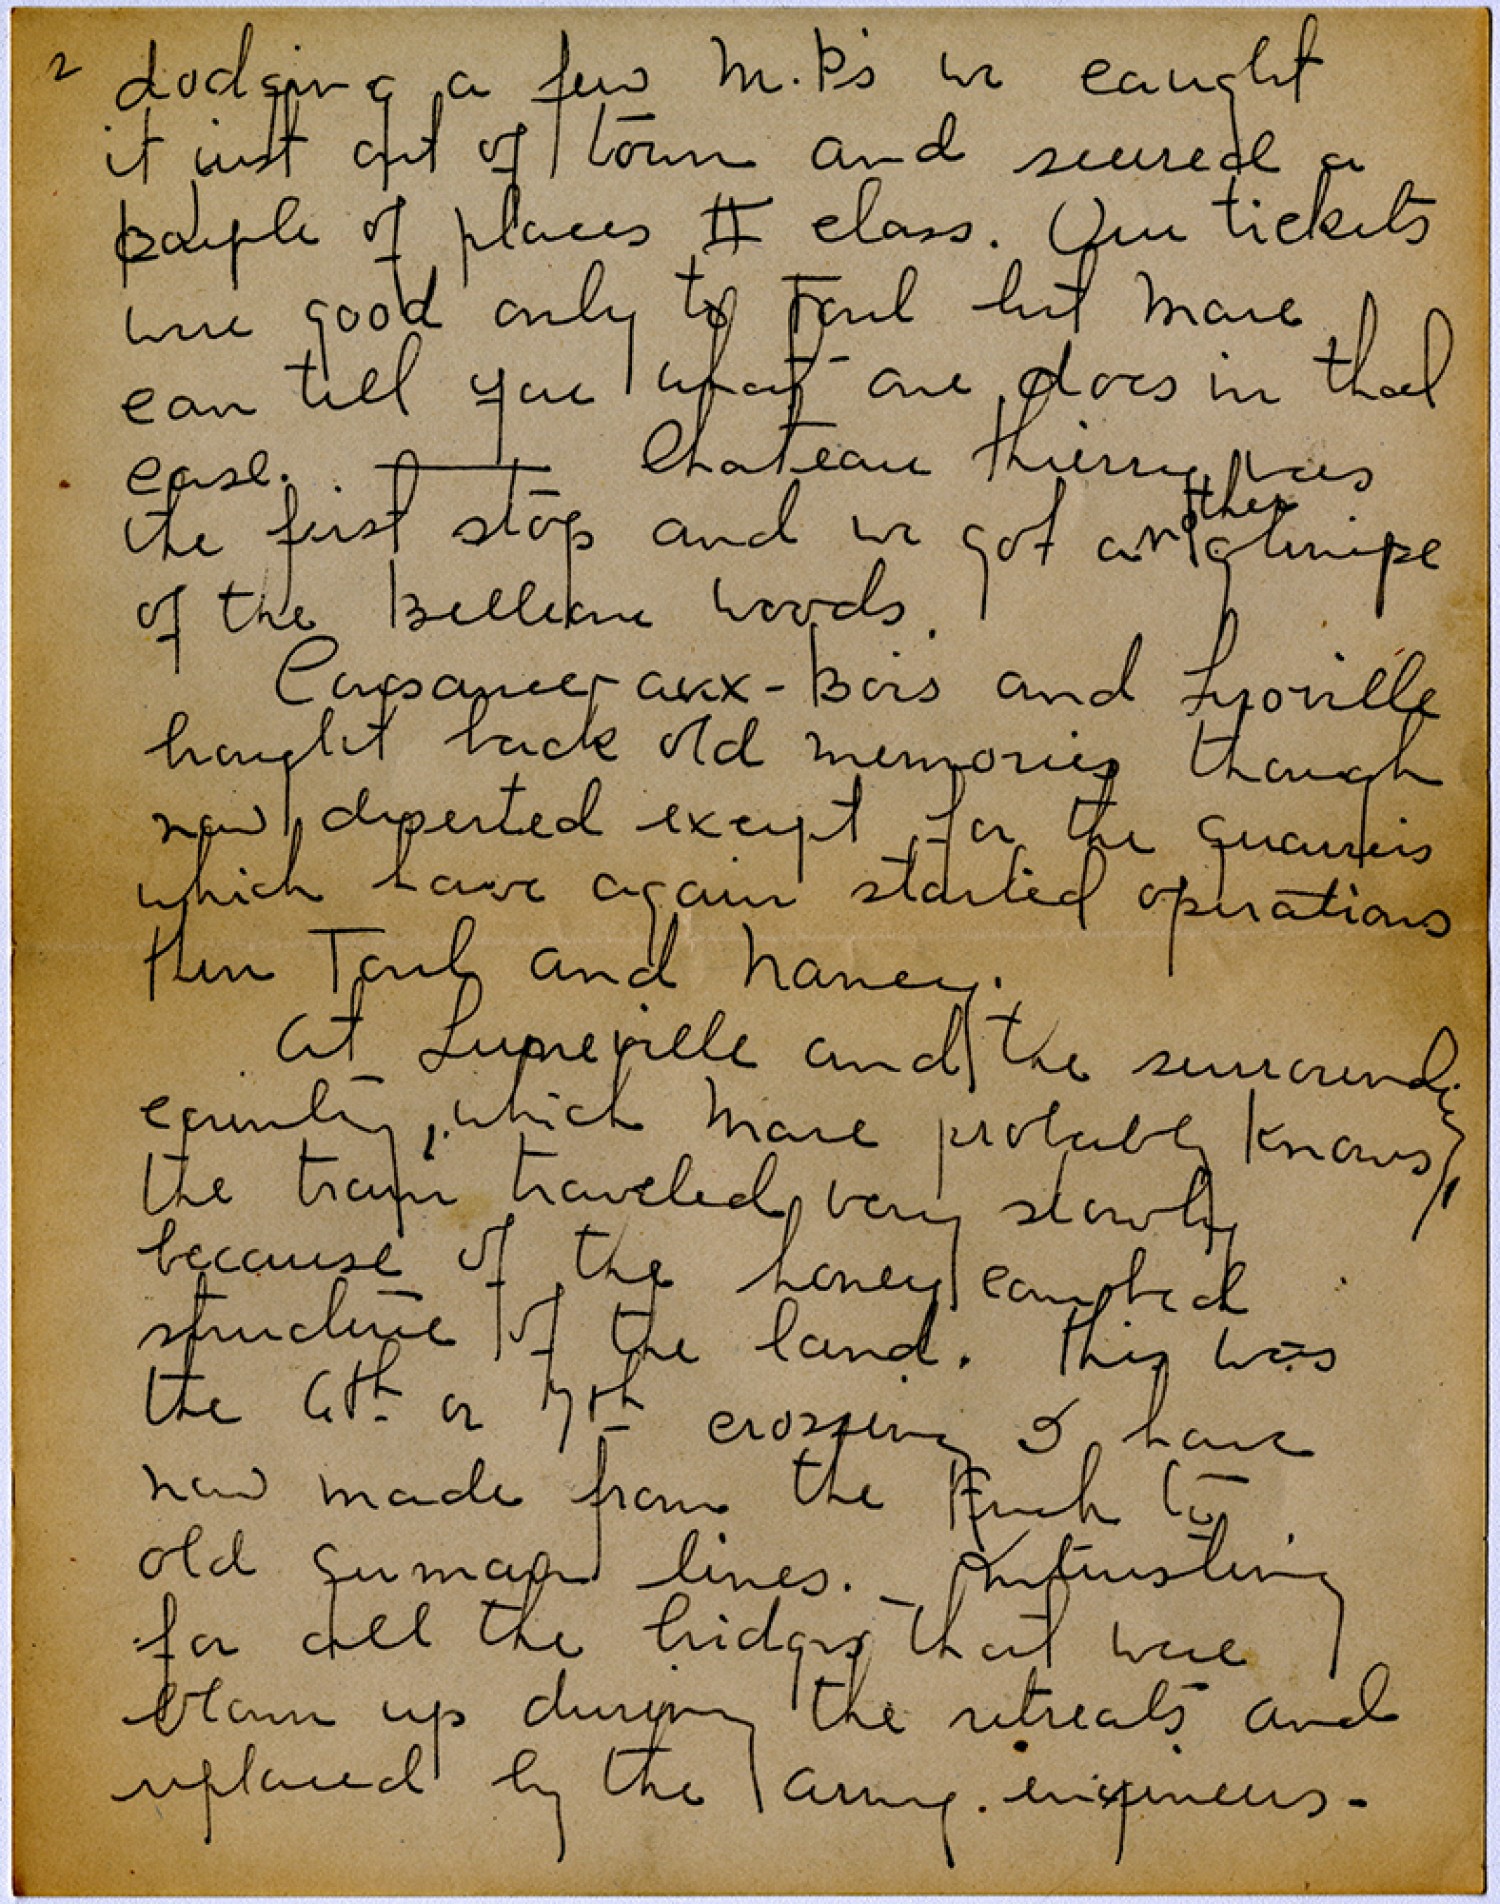 2
dodging a few M.P's we caught
it just out of town and secured a
couple of places II class. Our tickets
were good only to Toul but Marc
can tell you what one does in that
case. — Chateau Thierry was
the first stop and we got another glimpse
of the Belleau Woods.
aux-Bois and Lyoville
brought back old memories though
now deserted except for the quarries
which have again started operations
then Toul and Nancy.
At Luneville and the surrounding
country, which Marc probably knows,
the train traveled very slowly
because of the honey combed
structure of the land. This was
the 6th or 7th crossing I have
now made from the French to
old German lines. – Interesting
for all the bridges that were
blown up during the retreats and
replaced by the army engineers -